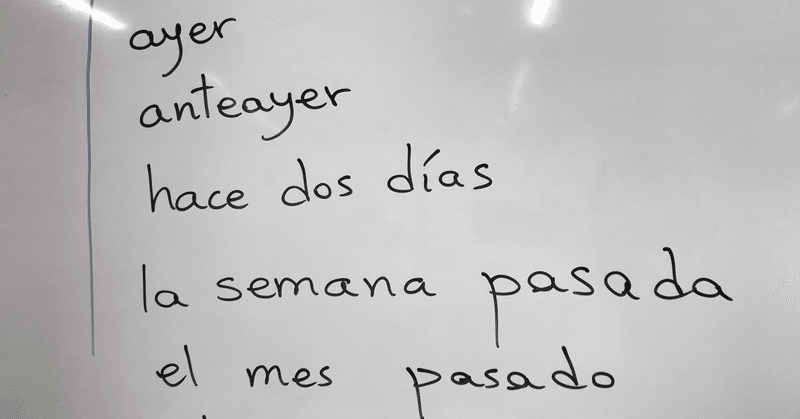 ayer
anteayer
hace dos días
la semana pasada
el mes pasado